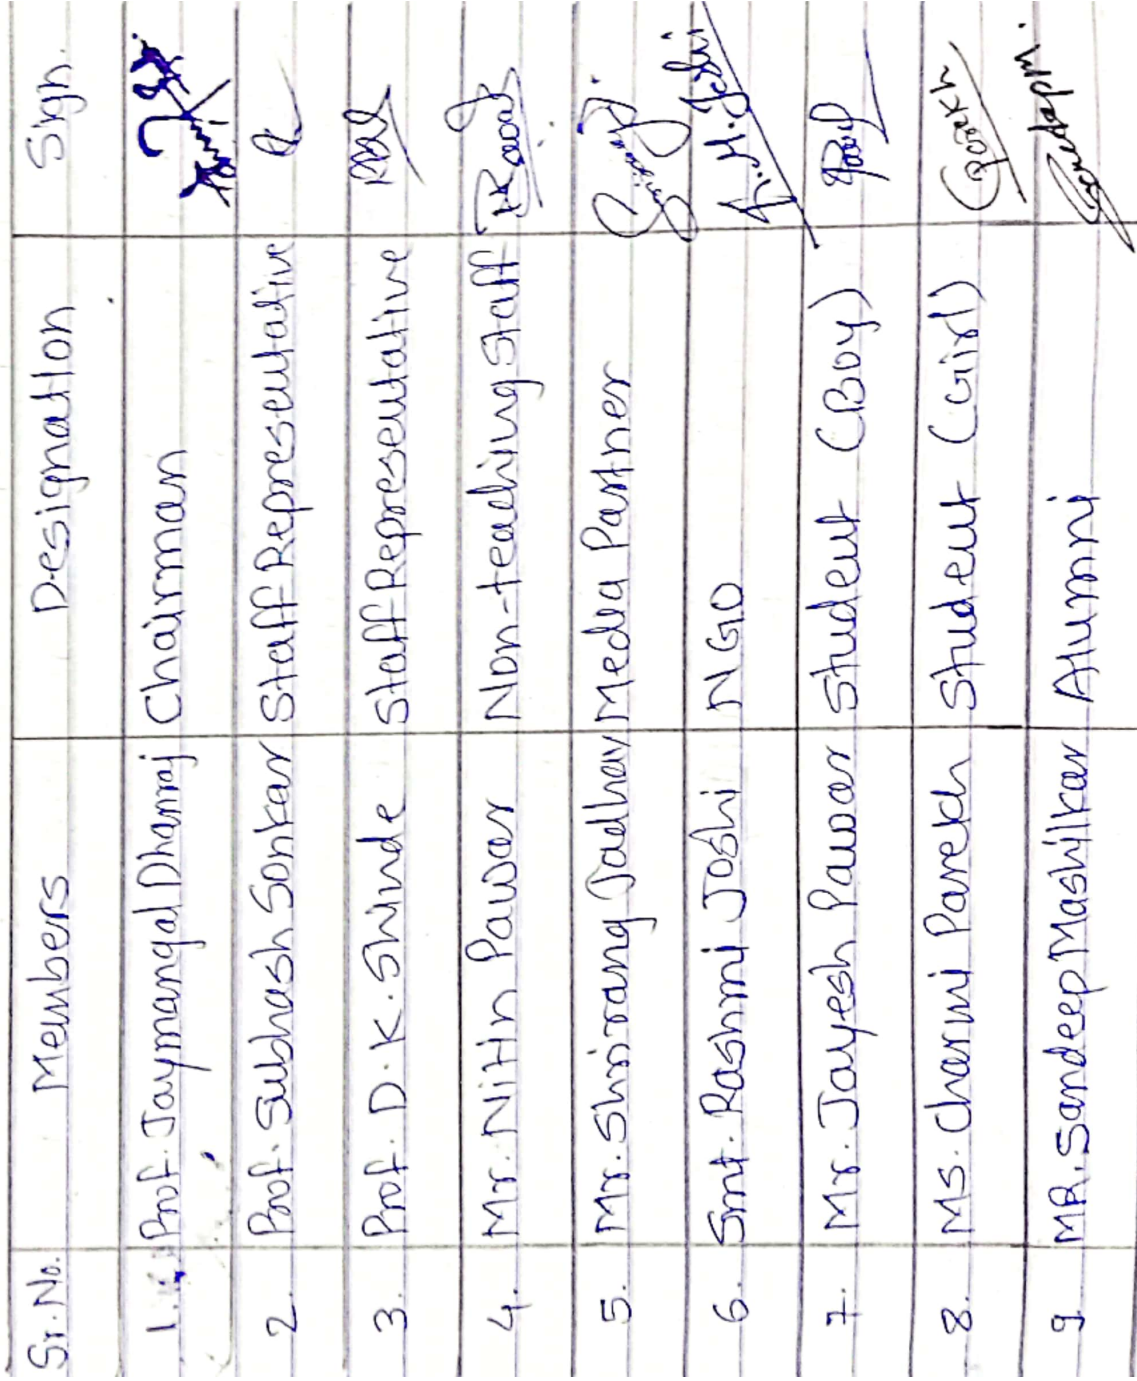 Sr. No. Members Designation Sign.
1. Prof. Jaymangal Dhanraj Chairman
2. Prof. Subhash Sonkar Staff Representative
3. Prof. D. K. Shinde Staff Representative
4. Mr. Nitin Pawar Non-teaching Staff
5. Mr. Shrirang Jadhav Media Partner
6. Smt. Rashmi Joshi NGO R. M. Joshi
7. Mr. Jayesh Pawar Student (Boy)
8. Ms. Charmi Parekh Student (Girl) Cparekh
9 MR. Sandeep Mashilkar Alumni